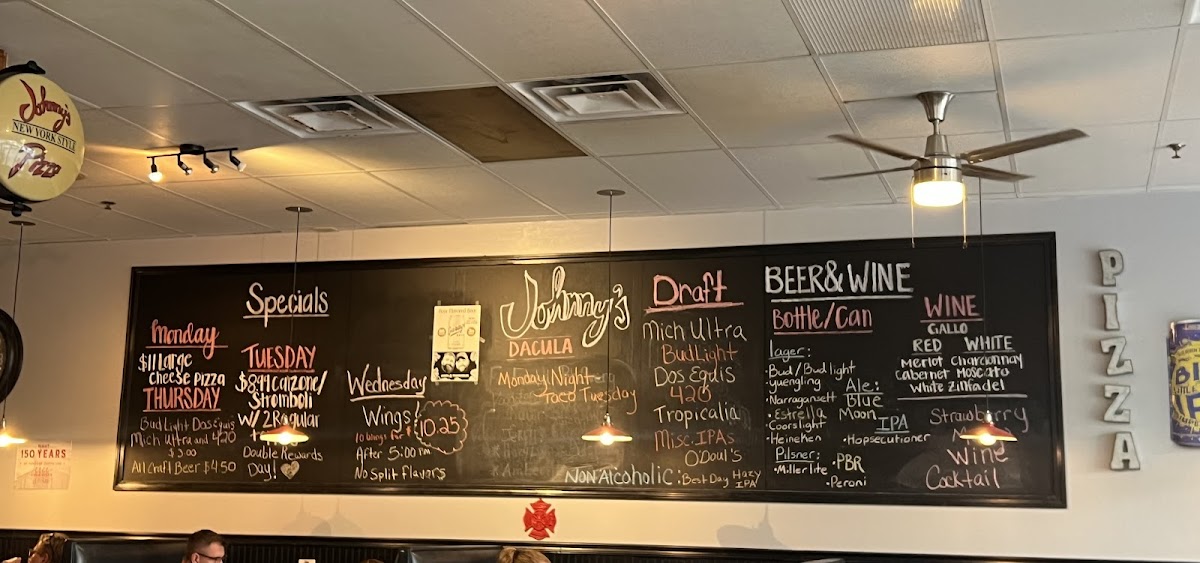 Johnny's
NEW YORK STYLE
Pizza
Specials
Monday
$11 Large
Cheese Pizza
THURSDAY
Bud Light Dos Equis
Mich Ultra and 420
$3.00
All Craft Beer $4.50
TUESDAY
$8.99 Calzone/
Stromboli
W/ 2 Regular
Double Rewards
Day!
Wednesday
Wings!
10 wings for $10.25
After 5:00 PM
No Split Flavors
Johnny's
DACULA
Monday Night
Taco Tuesday
Draft
Mich Ultra
Bud Light
Dos Equis
420
Tropicalia
Misc. IPAs
O'Doul's
Non Alcoholic: Best Day Hazy
IPA
BEER & WINE
Bottle/Can
Lager:
·Bud/Bud light
·yuengling
·Narragansett
·Estrella
Coorslight
·Heineken
Pilsner:
·Miller lite
·PBR
·Peroni
Ale:
Blue
Moon
IPA
·Hopsecutioner
WINE
GALLO
RED WHITE
Merlot Chardonnay
Cabernet Moscato
White Zinfadel
Strawberry
Wine
Cocktail
PIZZA
150 YEARS